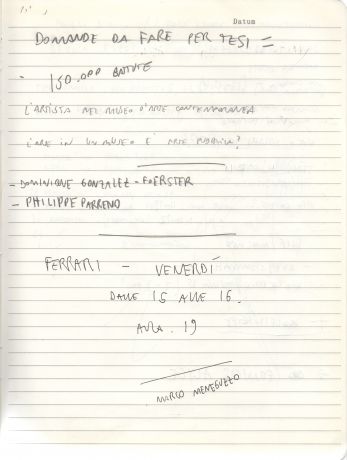 Datum
DOMANDE DA FARE PER TESI =
- 150.000 BATTUTE
L'ARTISTA NEL MUSEO D'ARTE CONTEMPORANEA
L'ARTE IN UN MUSEO È ARTE PUBBLICA?
- DOMINIQUE GONZALEZ-FOERSTER
- PHILIPPE PARRENO
FERRARI - VENERDÍ
DALLE 15 ALLE 16.
AULA. 19
MARCO MENEGUZZO